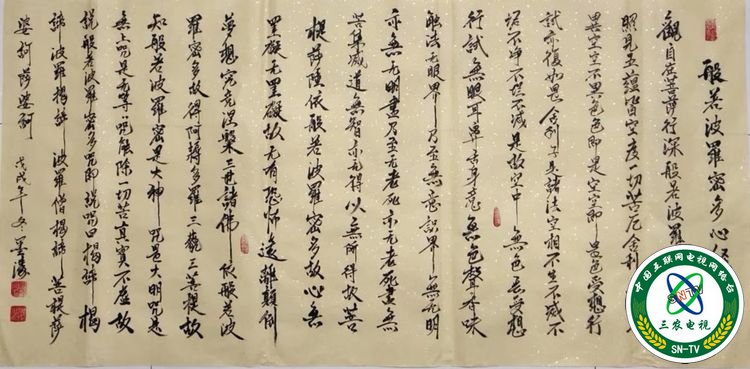 般若波羅密多心經
觀自在菩薩行深般若波羅
照見五蘊皆空度一切苦厄舍利
異空空不異色色即是空空即是色受想行
識亦復如是舍利子是諸法空相不生不滅不
垢不净不增不減是故空中無色无受想
行識無眼耳鼻舌身意無色聲香味
觸法无眼界乃至無意識界無无明
亦無无明盡乃至无老死亦无老死盡無
苦集滅道無智亦无得以無所得故菩
提薩陲依般若波羅密多故心無
罣礙无罣礙故无有恐怖遠離顛倒
夢想究竟涅槃三世諸佛依般若波
羅密多故得阿耨多羅三藐三菩提故
知般若波羅密是大神咒是大明咒是
無上咒是无等咒能除一切苦真實不虛故
說般若波羅密多咒即說咒曰揭諦揭
諦波羅揭諦波羅僧揭諦菩提薩
婆訶薩婆訶戊戌年冬
中国互联网电视网络台
SN-TV
三农电视
SN-TV